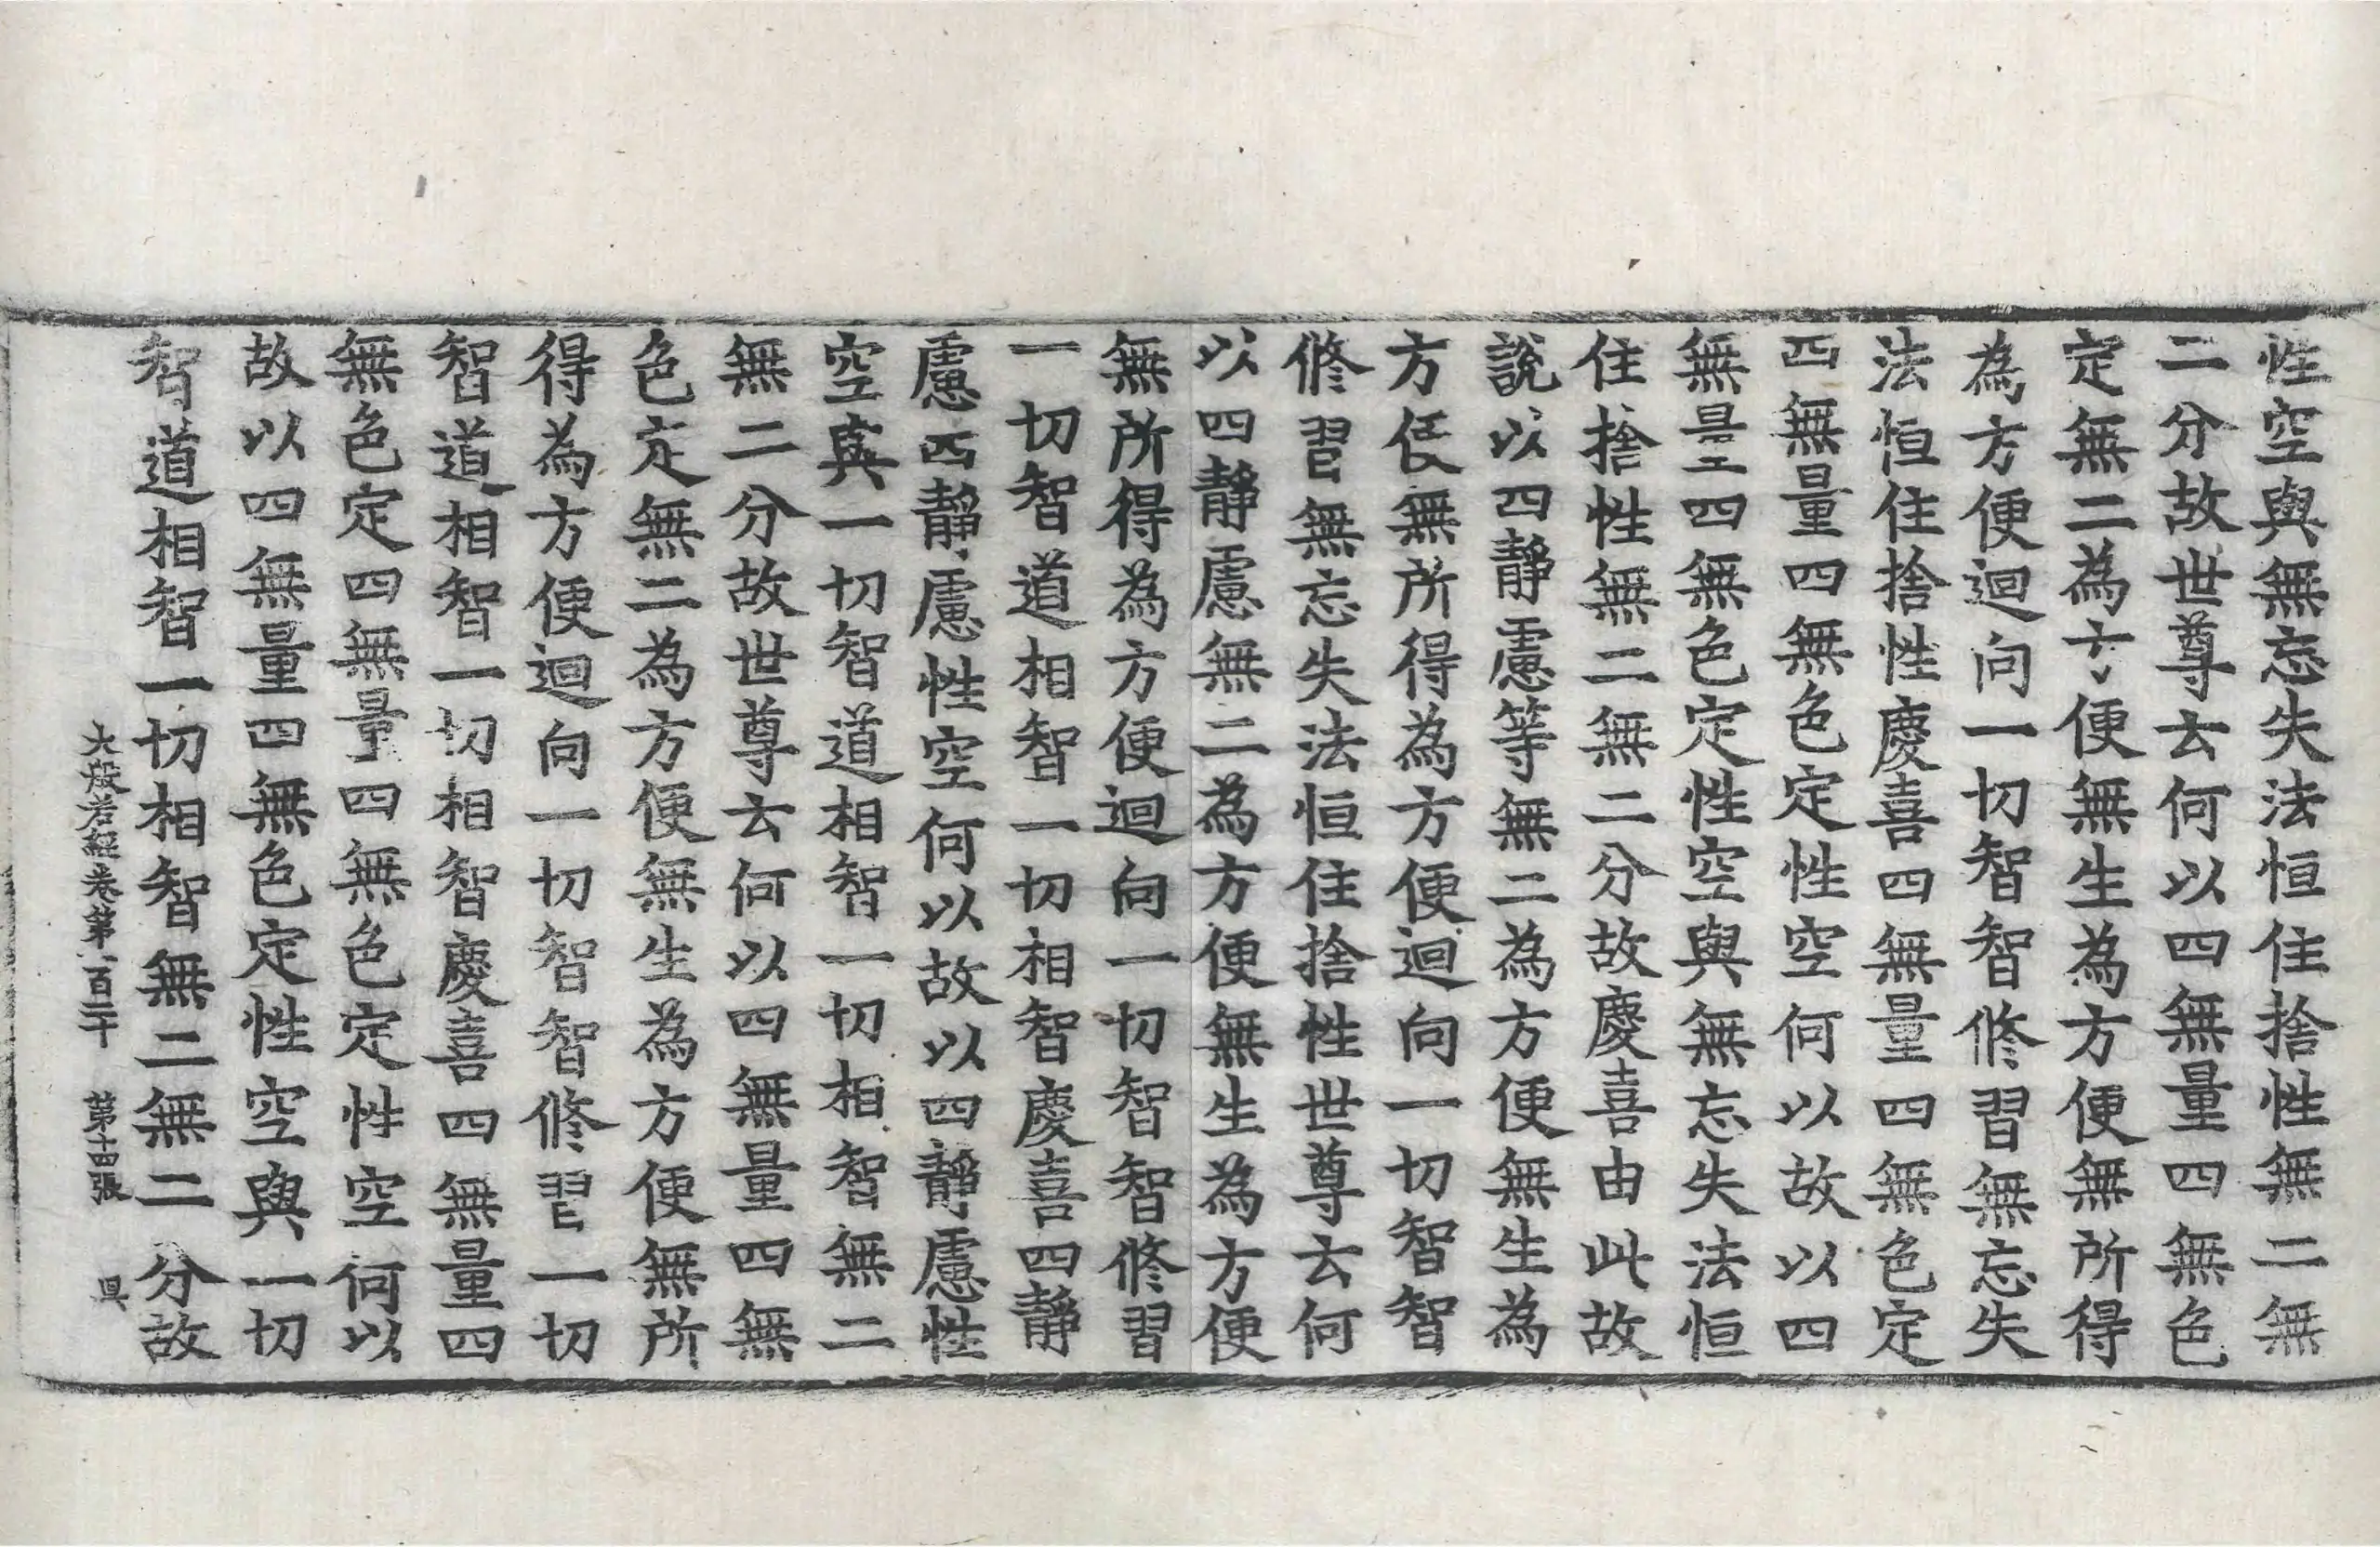 性空與無忘失法恒住捨性無二無
二分故世尊云何以四無量四無色
定無二為方便無生為方便無所得
為方便迴向一切智智修習無忘失
法恒住捨性慶喜四無量四無色定
四無量四無色定性空何以故以四
無量四無色定性空與無忘失法恒
住捨性無二無二分故慶喜由此故
說以四靜慮等無二為方便無生為
方便無所得為方便迴向一切智智
修習無忘失法恒住捨性世尊云何
以四靜慮無二為方便無生為方便
無所得為方便迴向一切智智修習
一切智道相智一切相智慶喜四靜
慮四靜慮性空何以故以四靜慮性
空與一切智道相智一切相智無二
無二分故世尊云何以四無量四無
色定無二為方便無生為方便無所
得為方便迴向一切智智修習一切
智道相智一切相智慶喜四無量四
無色定四無量四無色定性空何以
故以四無量四無色定性空與一切
智道相智一切相智無二無二分故
大般若經卷第一百二十 第十四張 昃